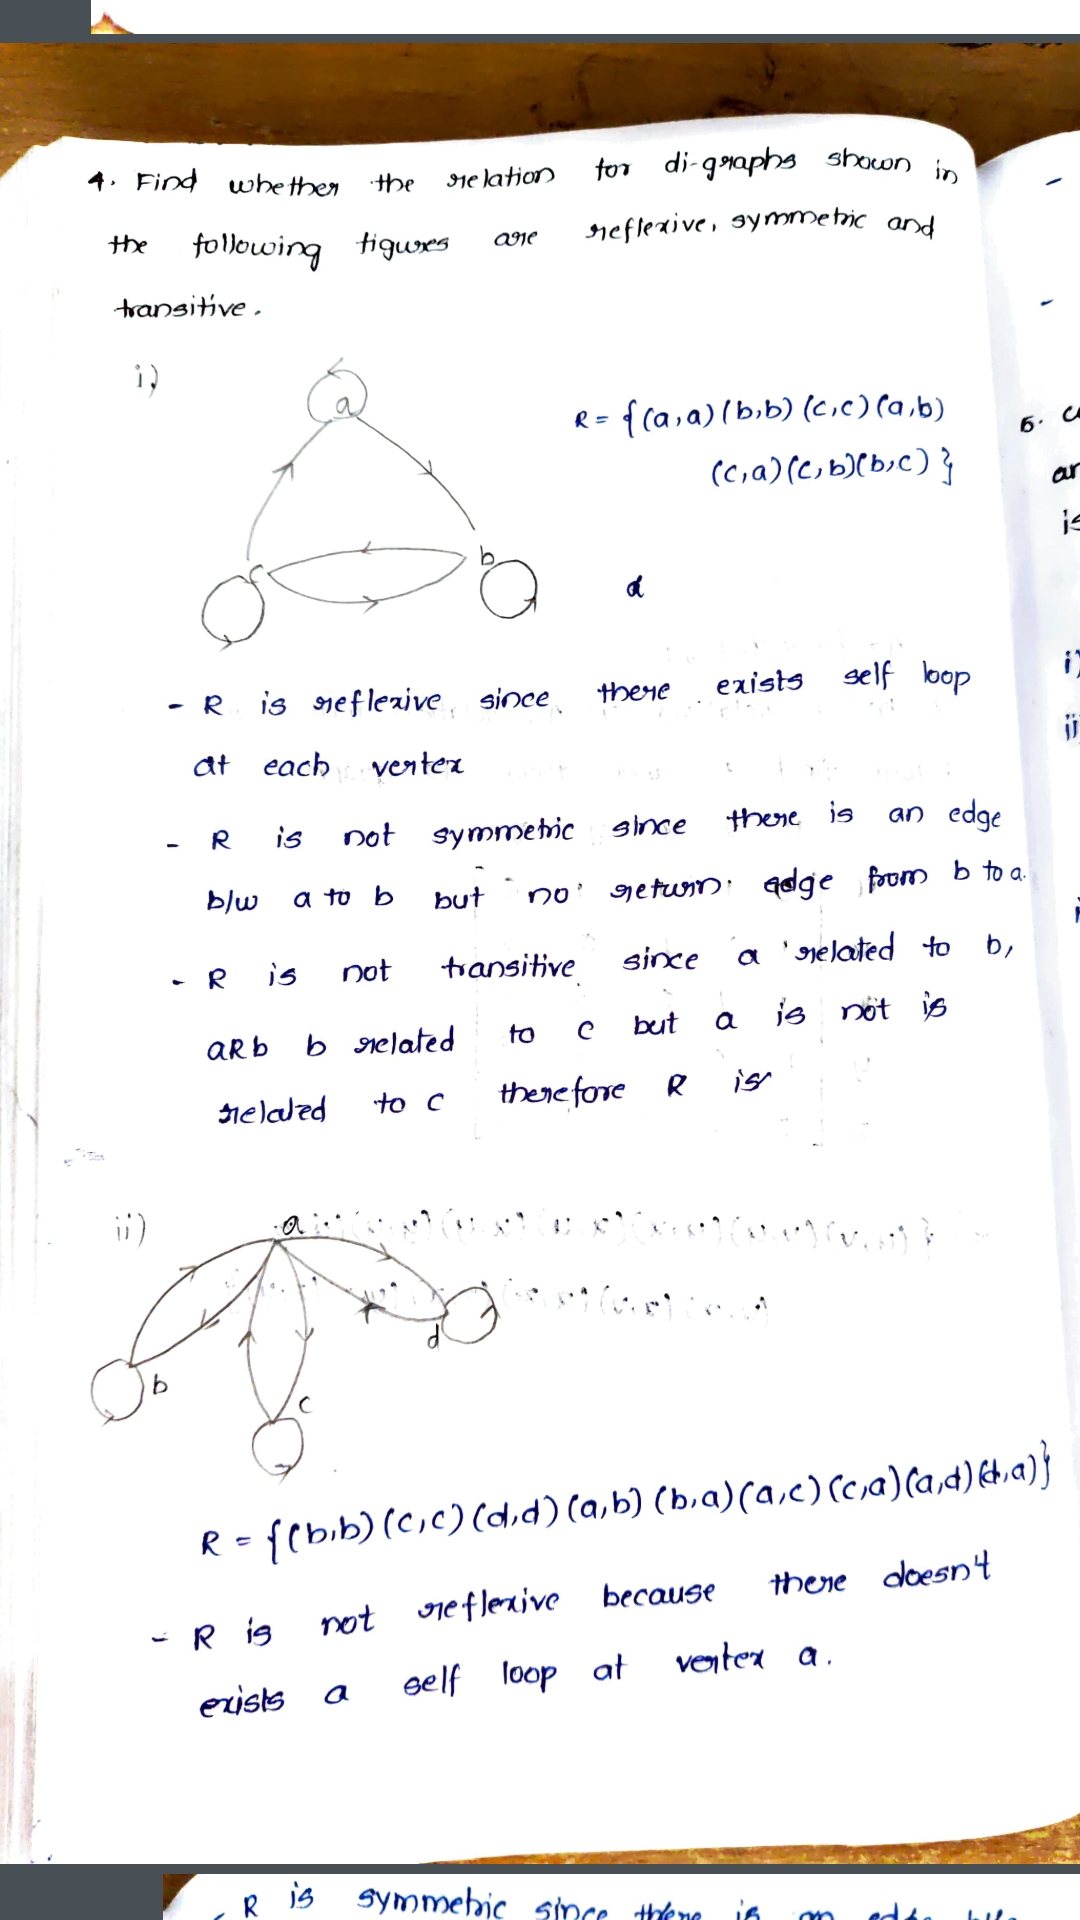 4. Find whether the relation for di-graphs shown in
the following figures are reflexive, symmetric and
transitive.
i)
a
R = {(a,a) (b,b) (c,c) (a,b)
(c,a) (c,b) (b,c) }
c
b
d
- R is reflexive since there exists self loop
at each vertex
- R is not symmetric since there is an edge
b/w a to b but no return edge from b to a.
- R is not transitive since a related to b,
aRb b related to c but a is not is
related to c therefore R is
ii)
a
d
b
c
R = {(b,b) (c,c) (d,d) (a,b) (b,a) (a,c) (c,a) (a,d) (d,a)}
- R is not reflexive because there doesn't
exists a self loop at vertex a.
- R is symmetric since there is an
5.
ar
is
i)
ii